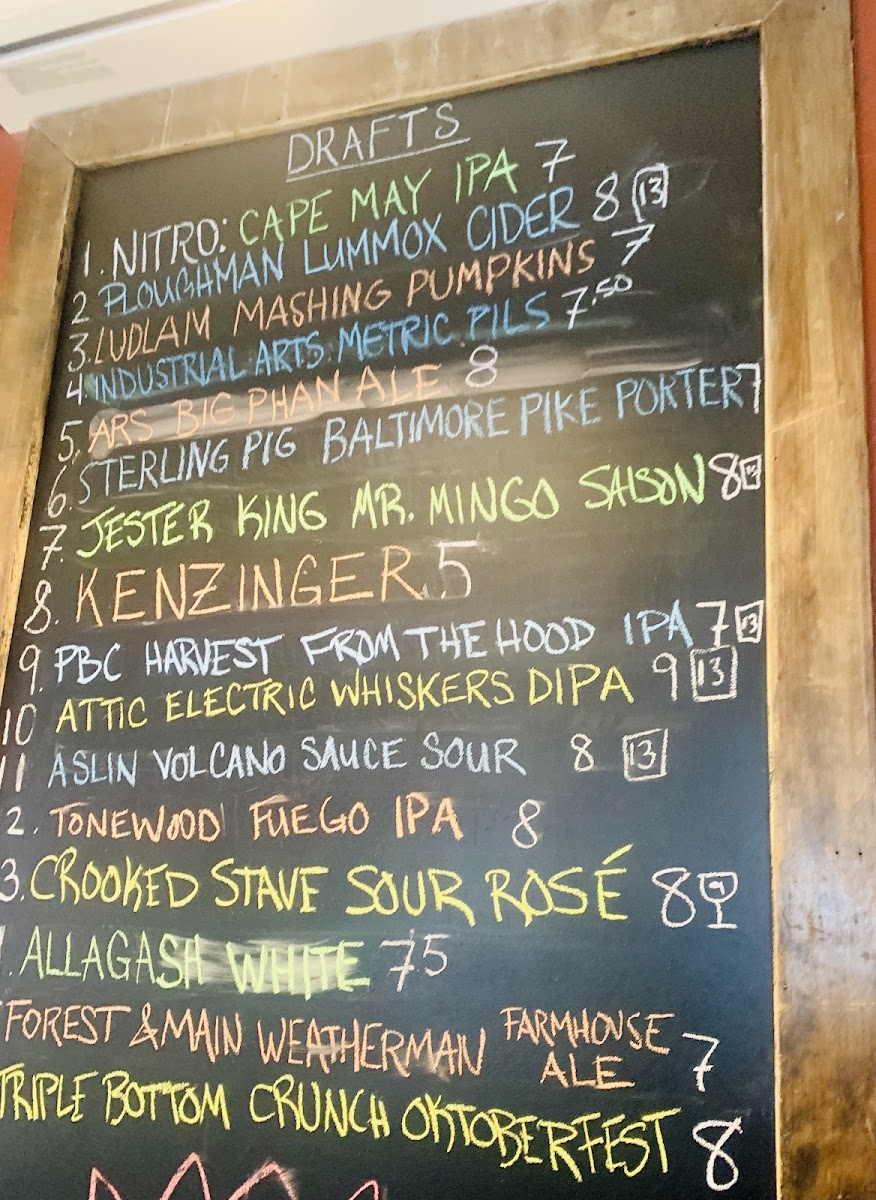 DRAFTS
1. NITRO: CAPE MAY IPA 7
2 PLOUGHMAN LUMMOX CIDER 8 13
3. LUDLAM MASHING PUMPKINS 7
4. INDUSTRIAL ARTS METRIC PILS 7.50
5. ARS BIG PHAN ALE 8
6. STERLING PIG BALTIMORE PIKE PORTER 7
7. JESTER KING MR. MINGO SAISON 8 13
8. KENZINGER 5
9. PBC HARVEST FROM THE HOOD IPA 7 13
10 ATTIC ELECTRIC WHISKERS DIPA 9 13
11 ASLIN VOLCANO SAUCE SOUR 8 13
2. TONEWOOD FUEGO IPA 8
3. CROOKED STAVE SOUR ROSÉ 8
. ALLAGASH WHITE 75
FOREST & MAIN WEATHERMAN FARMHOUSE ALE 7
TRIPLE BOTTOM CRUNCH OKTOBERFEST 8